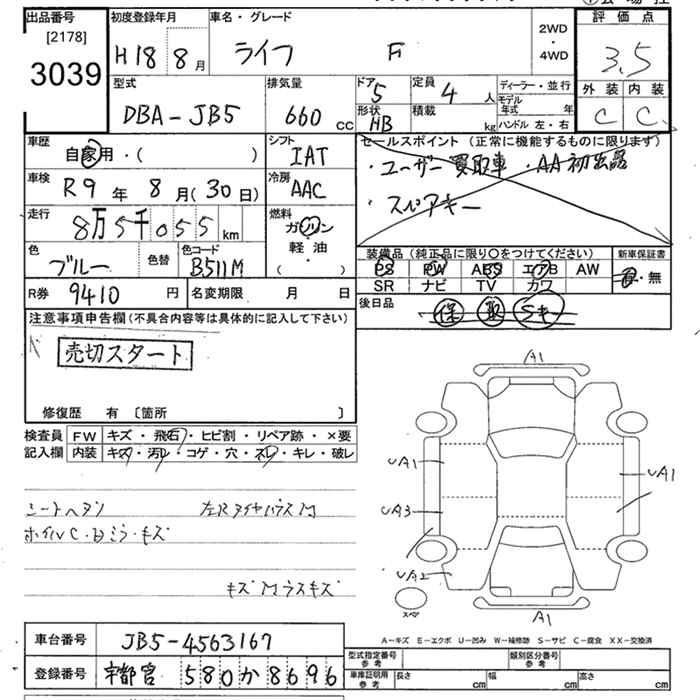 出品番号
[2178]
3039
初度登録年月
H18 8 月
車名・グレード
ライフ F
2WD
・
4WD
評価点
3.5
型式
DBA-JB5
排気量
660 CC
ドア
5
形状
HB
定員
4 人
積載
kg
ディーラー・並行
モデル年式 年
ハンドル 左・右
外装 内装
C C
車歴
自家用・( )
シフト
IAT
車検
R9 年 8 月(30日)
冷房
AAC
走行
8万5千055 km
燃料
ガソリン
軽油
( )
色
ブルー
色替
色コード
B511M
セールスポイント (正常に機能するものに限ります)
・ユーザー買取車 ・AA初出品
・スペアキー
装備品(純正品に限り〇をつけてください)
新車保証書
PS PW ABS エアB AW
SR ナビ TV カワ
有・無
R券 9410 円
名変期限 月 日
後日品
保 取 Sキ
注意事項申告欄(不具合内容等は具体的に記入して下さい)
売切スタート
修復歴 有 〔箇所 〕
検査員
記入欄
FW キズ・飛石・ヒビ割・リペア跡・×要
内装 キズ・汚レ・コゲ・穴・スレ・キレ・破レ
シートヘタリ
ホイルC・
キズ
A1
UA1
UA1
UA3
UA2
A1
スペア
A-キズ E-エクボ U-凹み W-補修跡 S-サビ C-腐食 XX-交換済
車台番号 JB5-4563167
登録番号 宇都宮 580か8696
型式指定番号
参考
類別区分番号
参考
車庫証明用
参考
長さ cm 幅 cm 高さ cm